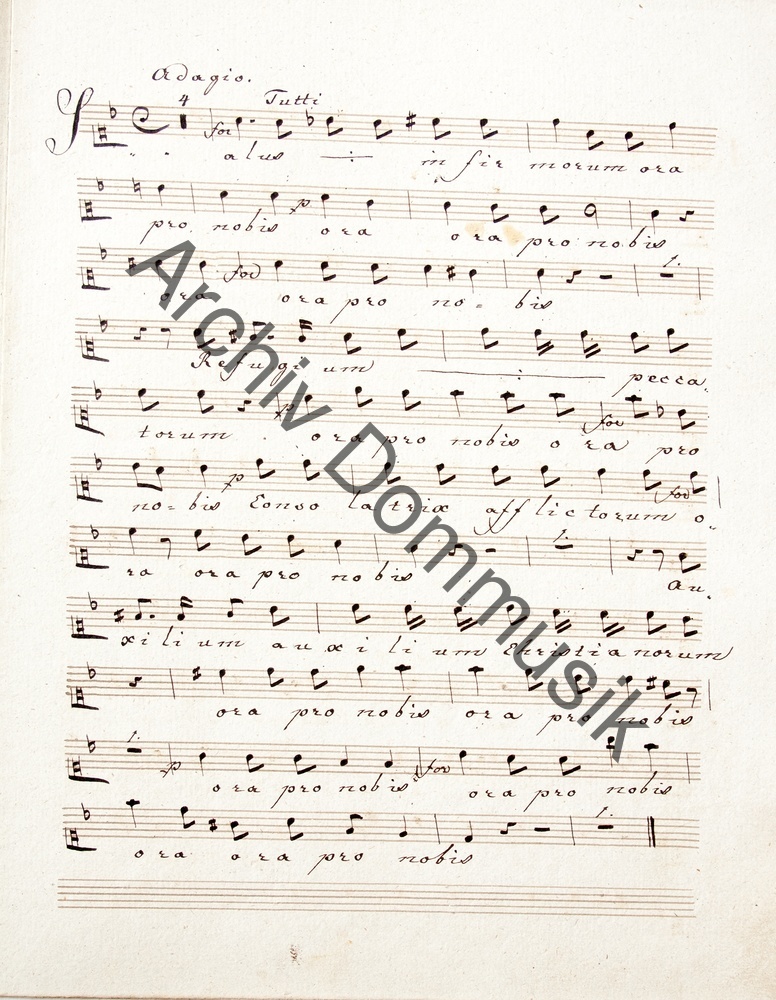 Adagio.
4 Tutti
for
Salus in fir morum ora
p
pro nobis ora ora pro nobis
for 1.
ora ora pro no = bis
Refugi um pecca,
p for
torum ora pro nobis ora pro
p for
no = bis Conso latrix afflictorum o,,
1.
ra ora pro nobis Au,
xilium auxilium Christianorum
ora pro nobis ora pro nobis
1. p for
ora pro nobis ora pro nobis
1.
ora ora pro nobis
Archiv Dommusik